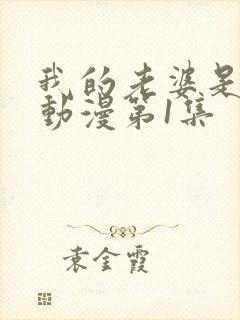 我的老婆是
動漫第1集
袁金霞